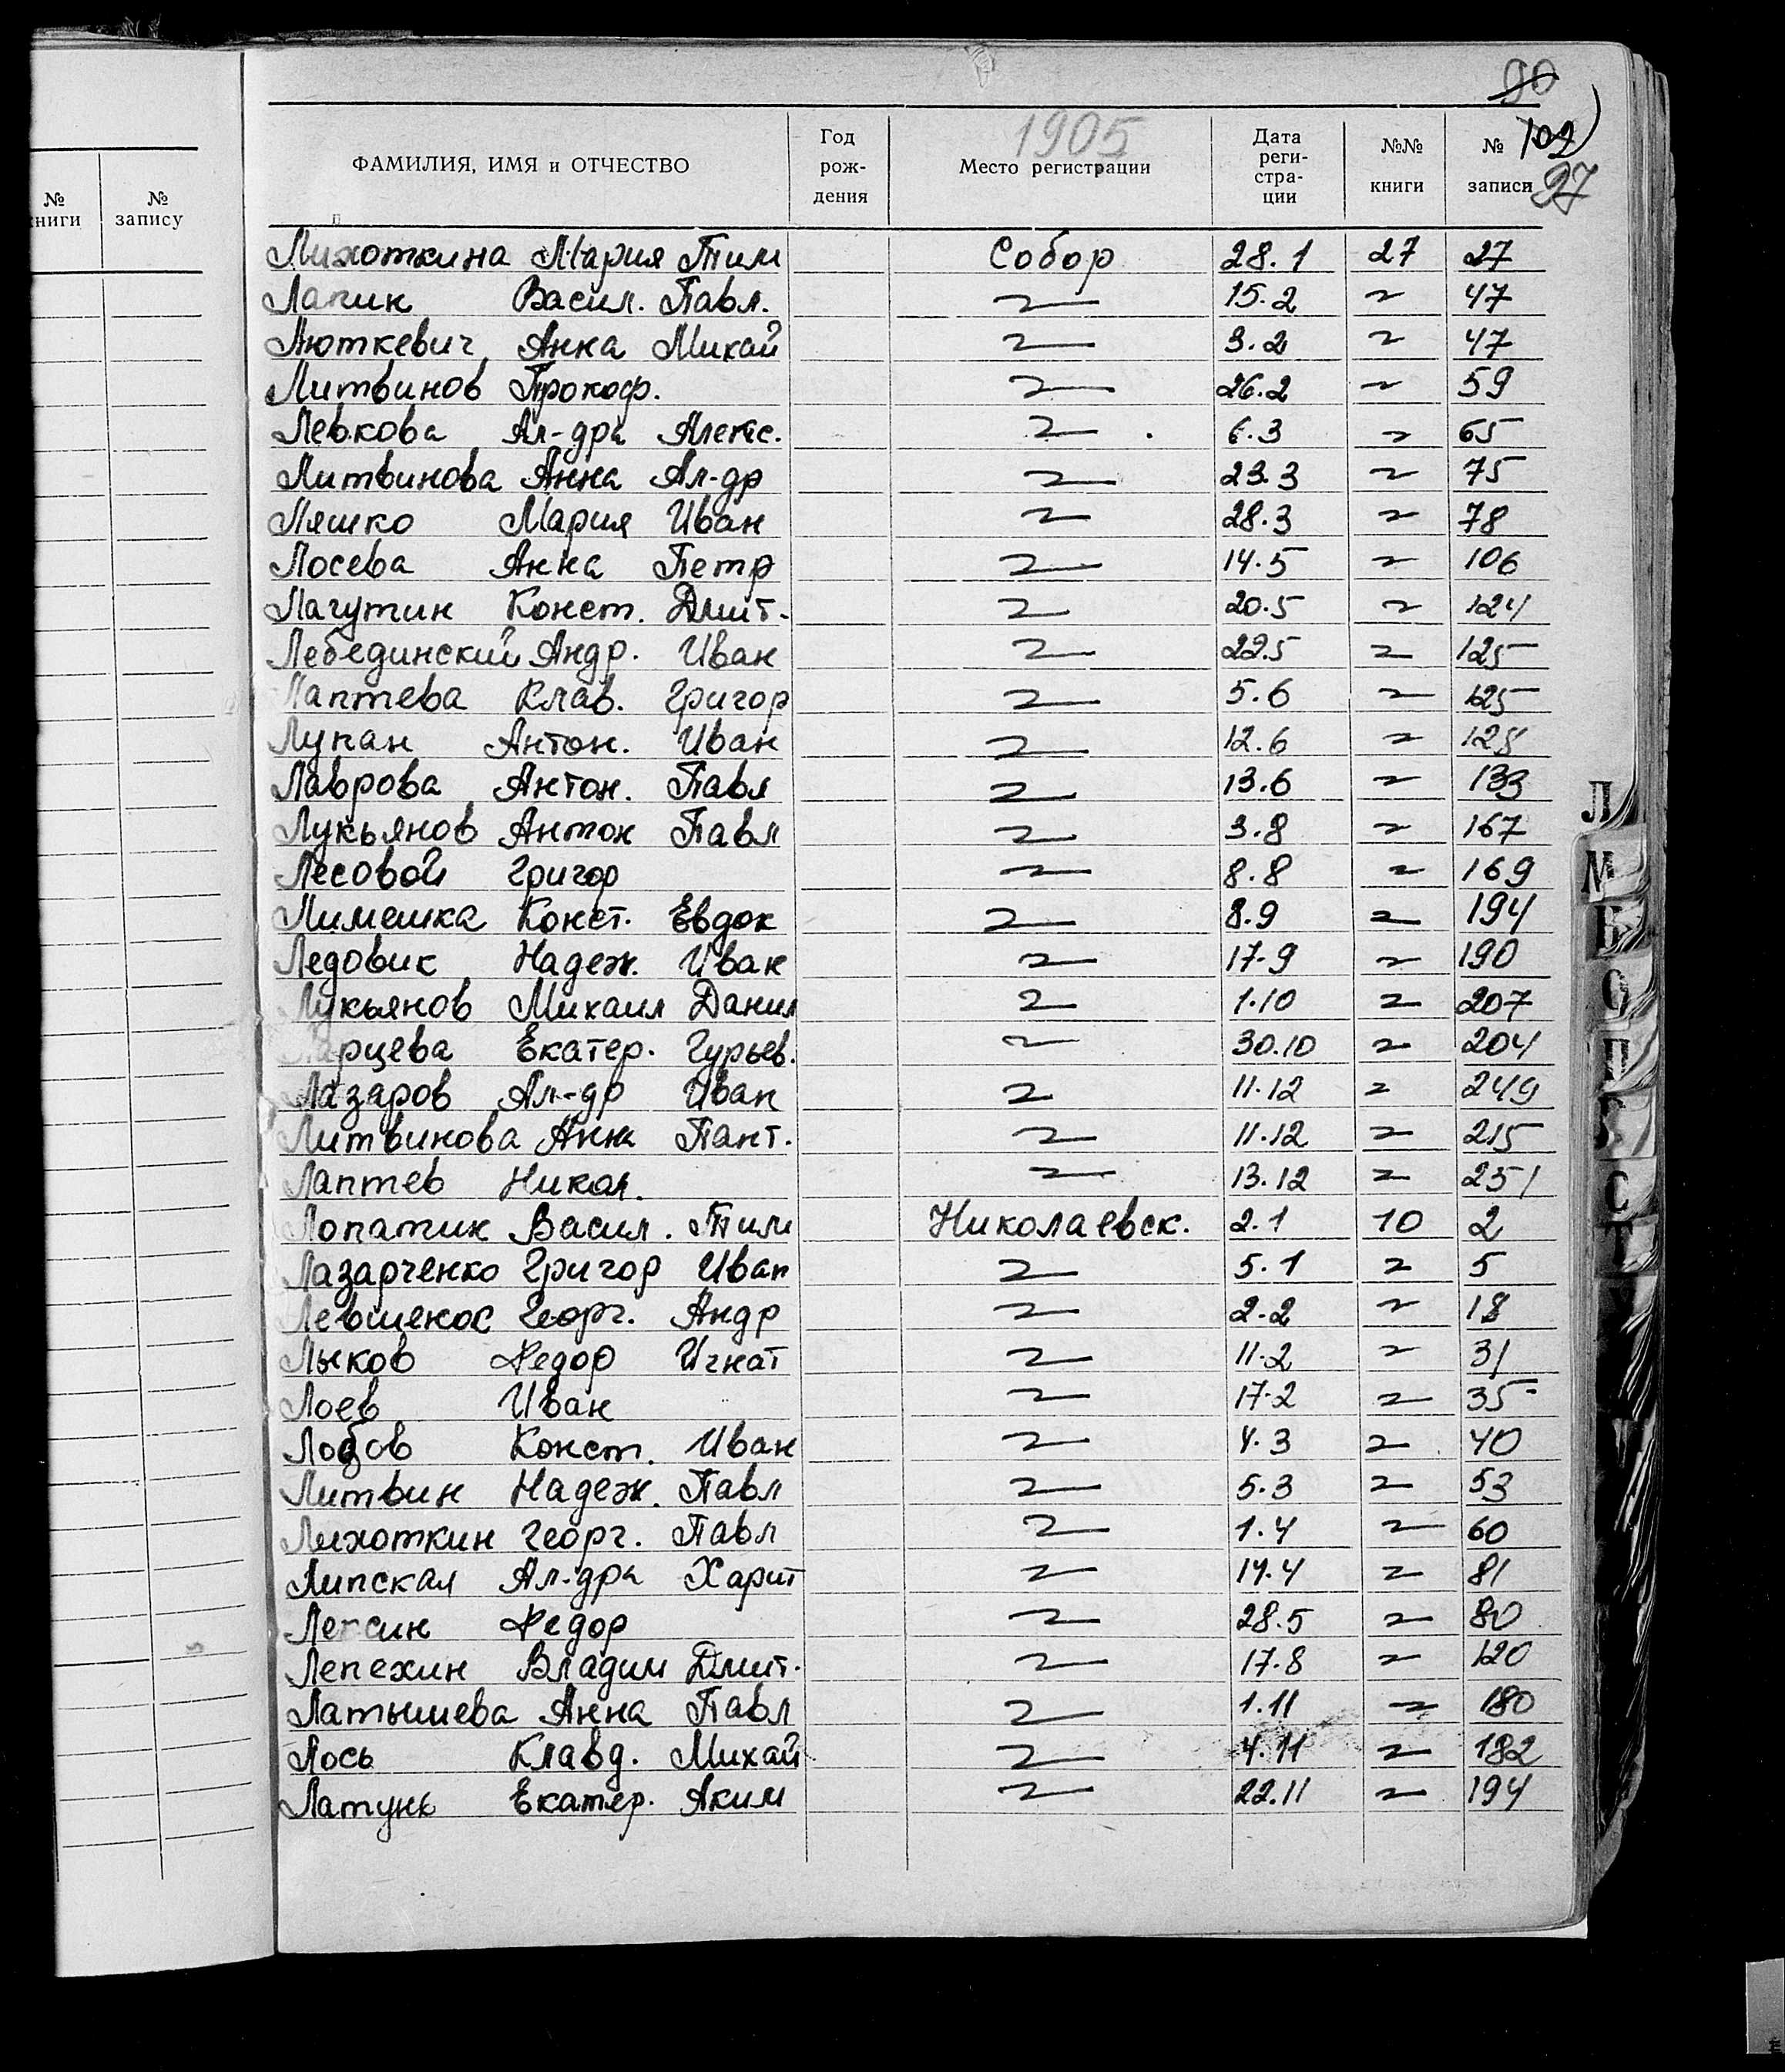 90
102)
97
№ книги № запису
ФАМИЛИЯ, ИМЯ и ОТЧЕСТВО Год рождения 1905 Место регистрации Дата регистрации №№ книги № записи
Лихоткина Мария Тим Собор 28.1 27 27
Лапик Васил. Павл. 〃 15.2 〃 47
Люткевич Анна Михай 〃 3.2 〃 47
Литвинов Прокоф. 〃 26.2 〃 59
Левкова Ал-дра Алекс. 〃 6.3 〃 65
Литвинова Анна Ал-др 〃 23.3 〃 75
Ляшко Мария Иван 〃 28.3 〃 78
Лосева Анна Петр 〃 14.5 〃 106
Лагутин Конст. Дмит. 〃 20.5 〃 124
Лебединский Андр. Иван 〃 22.5 〃 125
Лаптева Клав. Григор 〃 5.6 〃 125
Лупан Антон. Иван 〃 12.6 〃 128
Лаврова Антон. Павл 〃 13.6 〃 133
Лукьянов Антон Павл 〃 3.8 〃 167
Лесовой Григор 〃 8.8 〃 169
Лимешка Конст. Евдок 〃 8.9 〃 194
Ледовик Надеж. Иван 〃 17.9 〃 190
Лукьянов Михаил Данил 〃 1.10 〃 207
Ларцева Екатер. Гурьев. 〃 30.10 〃 204
Лазаров Ал-др Иван 〃 11.12 〃 249
Литвинова Анна Пант. 〃 11.12 〃 215
Лаптев Никол. 〃 13.12 〃 251
Лопатик Васил. Тим Николаевск. 2.1 10 2
Лазарченко Григор Иван 〃 5.1 〃 5
Георг. Андр 〃 2.2 〃 18
Лыков Федор Игнат 〃 11.2 〃 31
Лоев Иван 〃 17.2 〃 35
Лобов Конст. Иван 〃 4.3 〃 40
Литвин Надеж. Павл 〃 5.3 〃 53
Лихоткин Георг. Павл 〃 1.4 〃 60
Липская Ал-дра Харит 〃 14.4 〃 81
Федор 〃 28.5 〃 80
Лепехин Владим Дмит. 〃 17.8 〃 120
Латышева Анна Павл 〃 1.11 〃 180
Лось Клавд. Михай 〃 4.11 〃 182
Латунь Екатер. Аким 〃 22.11 〃 194
Л
М
О
П
С
Т